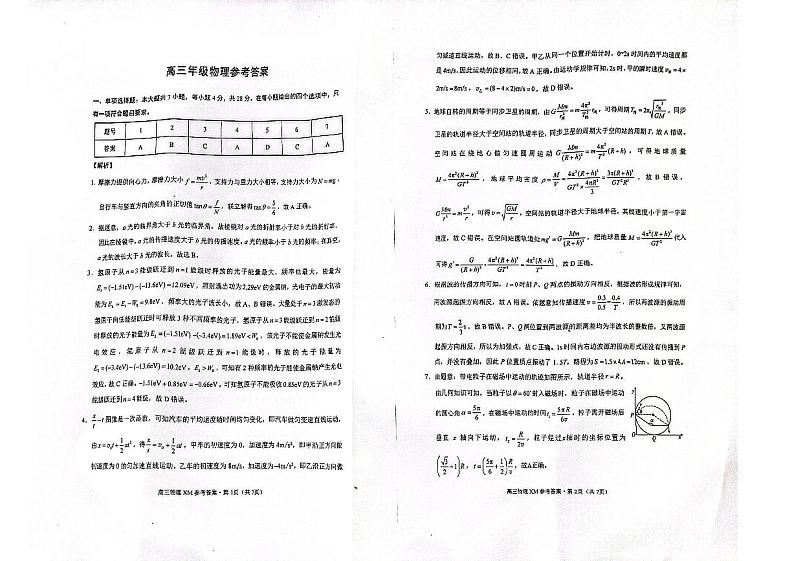 高三年级物理参考答案
一、单项选择题：本大题共7小题，每小题4分，共28分。在每小题给出的四个选项中，只
有一项符合题目要求。
题号 1 2 3 4 5 6 7
答案 A B C A D C A
【解析】
1. 摩擦力提供向心力，摩擦力大小 f=mv²/r，支持力与重力大小相等，支持力大小为 N=mg，
自行车与竖直方向的夹角的正切值 tanθ=f/N，联立解得 tanθ=5/6，故A正确。
2. 据题意，a光的临界角大于b光的临界角，故棱镜对a光的折射率小于对b光的折射率，
因此在棱镜中，a光的传播速度大于b光的传播速度，a光的频率小于b光的频率；在真空，
a光的波长大于b光的波长，故选B。
3. 氢原子从n=3能级跃迁到n=1能级时释放的光子能量最大，频率也最大，能量为
E₁=(-1.51eV)-(-13.6eV)=12.09eV，照射逸出功为2.29eV的金属钠，光电子的最大初动
能为 Eₖ=E₁-W₀=9.8eV，频率大的光子波长小，故A、B错误。大量处于n=3激发态的
氢原子向低能级跃迁时可释放3种不同频率的光子，氢原子从n=3能级跃迁到n=2能级
时释放的光子能量为 E₂=(-1.51eV)-(-3.4eV)=1.89eV<W₀，该光子不能使金属钠发生光
电效应，氢原子从n=2能级跃迁到n=1能级时，释放的光子能量为
E₃=(-3.4eV)-(-13.6eV)=10.2eV，E₃>W₀，可知有2种频率的光子能使金属钠产生光电
效应，故C正确。-1.51eV+0.85eV=-0.66eV，可知氢原子不能吸收0.85eV的光子从n=3
能级跃迁到n=4能级，故D错误。
4. x/t-t图像是一次函数，可知汽车的平均速度随时间均匀变化，即汽车做匀变速直线运动，
由 x=v₀t+1/2at²，得 x/t=v₀+1/2at，甲车的初速度为0，加速度为4m/s²，即甲沿正方向做
初速度为0的匀加速直线运动，乙车的初速度为8m/s，加速度为-4m/s²，即乙沿正方向做
高三物理XM参考答案·第1页（共7页）
匀减速直线运动，故B、C错误。甲乙从同一个位置开始计时，0~2s时间内的平均速度都
是4m/s，因此运动的位移相同，故A正确。由运动学规律可知，2s时，甲的瞬时速度 v甲=4×
2m/s=8m/s，v乙=(8-4×2)m/s=0，故D错误。
5. 地球自转的周期等于同步卫星的周期，由 GMm/r同²=m4π²/T同²r同，可得周期 T同=2π√(r同³/GM)，同步
卫星的轨道半径大于空间站的轨道半径，同步卫星的周期大于空间站的周期T，故A错误。
空间站在绕地心做匀速圆周运动 GMm/(R+h)²=m4π²/T²(R+h)，可得地球质量
M=4π²(R+h)³/GT²，地球平均密度 ρ=M/V=4π²(R+h)³/(GT²×4πR³/3)=3π(R+h)³/GT²R³，故B错误。
GMm/r²=mv²/r，可得 v=√(GM/r)，空间站的轨道半径大于地球半径，其线速度小于第一宇宙
速度，故C错误。在空间站圆轨道处 mg'=GMm/(R+h)²，把地球质量 M=4π²(R+h)³/GT² 代入
可得 g'=G/(R+h)²·4π²(R+h)³/GT²=4π²(R+h)/T²，故D正确。
6. 根据波的传播方向可知，t=0时刻P、Q两点的振动方向相反，根据波的形成规律可知，
两波源起振方向相反，故A错误。依题意知传播速度 v=0.3/0.5=0.4/T，所以两波源的振动周
期为 T=2/3s，故B错误。P、Q两位置到两波源的距离差均为半波长的整数倍，又两波源
起振方向相反，所以为加强点，故C正确。1s时间内右边波源的振动形式还没有传播到P
点，并没有叠加，因此P位置质点振动了1.5T，路程为 S=1.5×4A=12cm，故D错误。
7. 由题意：带电粒子在磁场中运动的轨迹如图所示，轨道半径 r=R，
由几何知识可知，当粒子以θ=60°射入磁场时，粒子在磁场中运动
的圆心角 α=5π/6，在磁场中运动的时间 t₁=5πR/6v，粒子离开磁场后
垂直x轴向下运动，t₂=R/2v，粒子经过x轴时的坐标位置为
(√3/2+1)R，t=(5π/6+1/2)R/v，故A正确。
O
P
Q
x
高三物理XM参考答案·第2页（共7页）